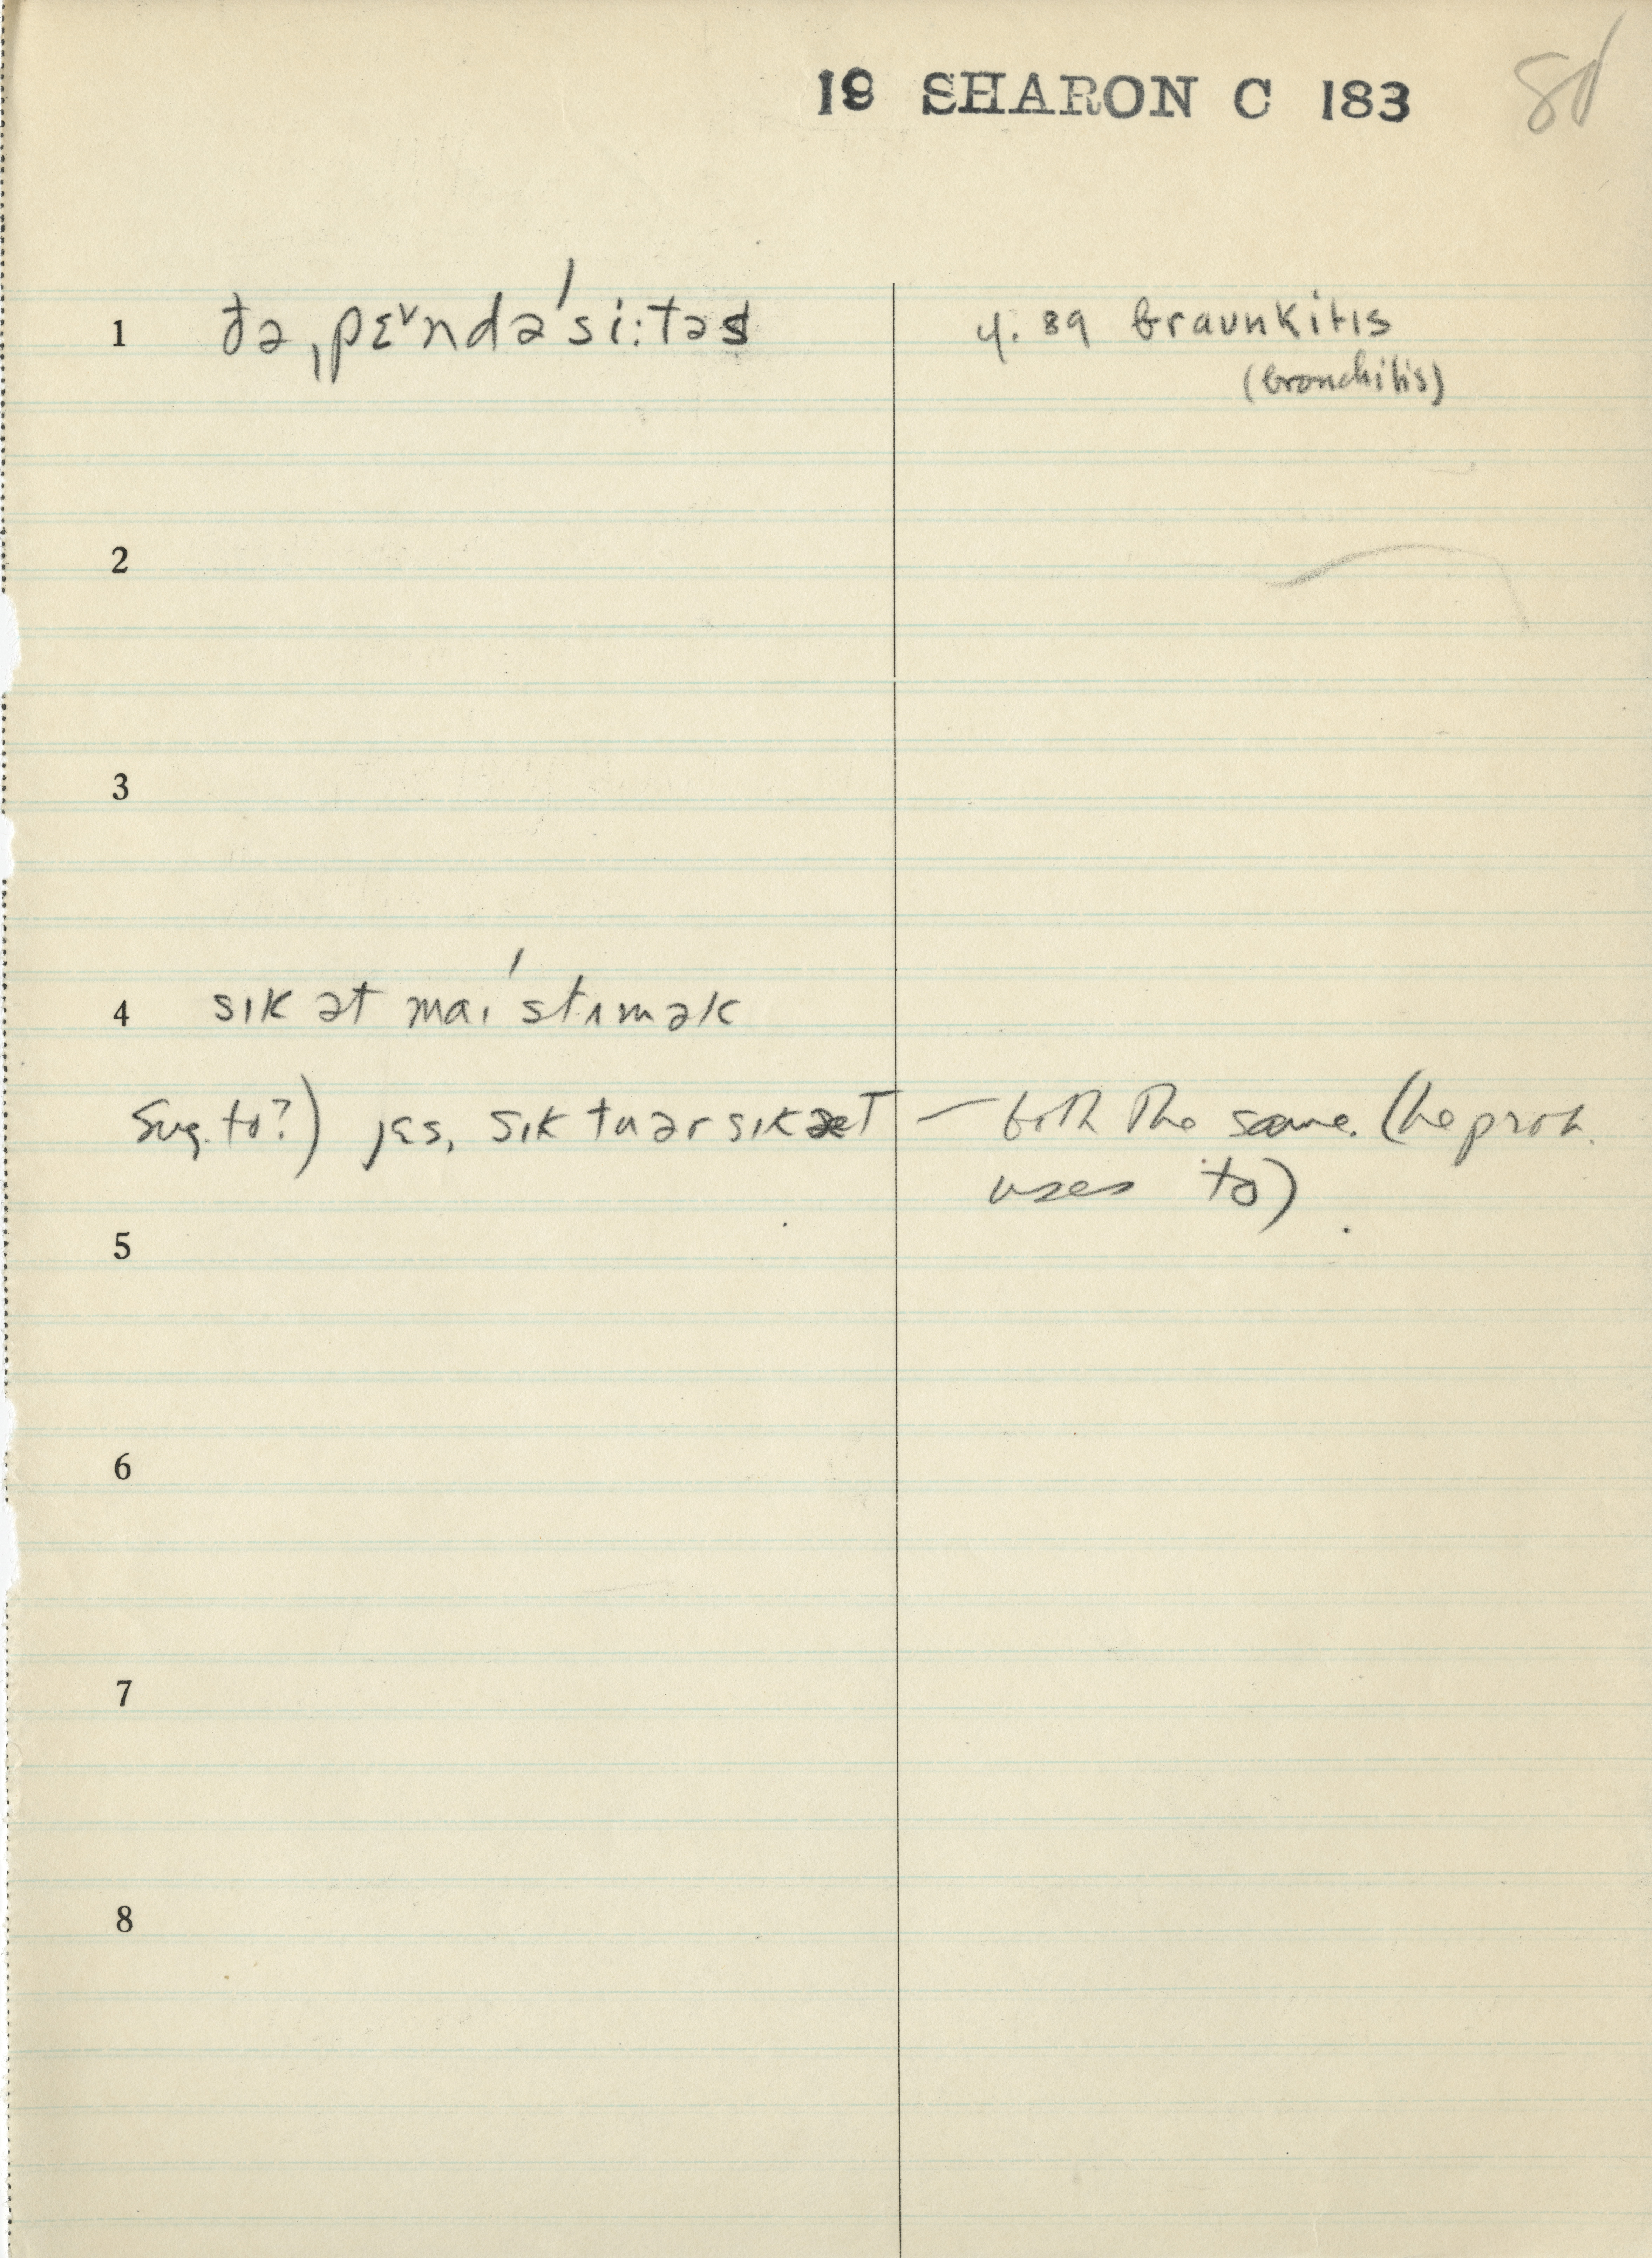 19 SHARON C 183 80
1 ðə ˌpɛ˅ndə ́si:təs
4. 89 braunkitis
(bronchitis)
2
3
4 sɪk ət maɪ ́stʌmək
Sug. to?) jɛs, sɪk tu ər sɪk æt — both the same. (he prob.
uses to)
5
6
7
8